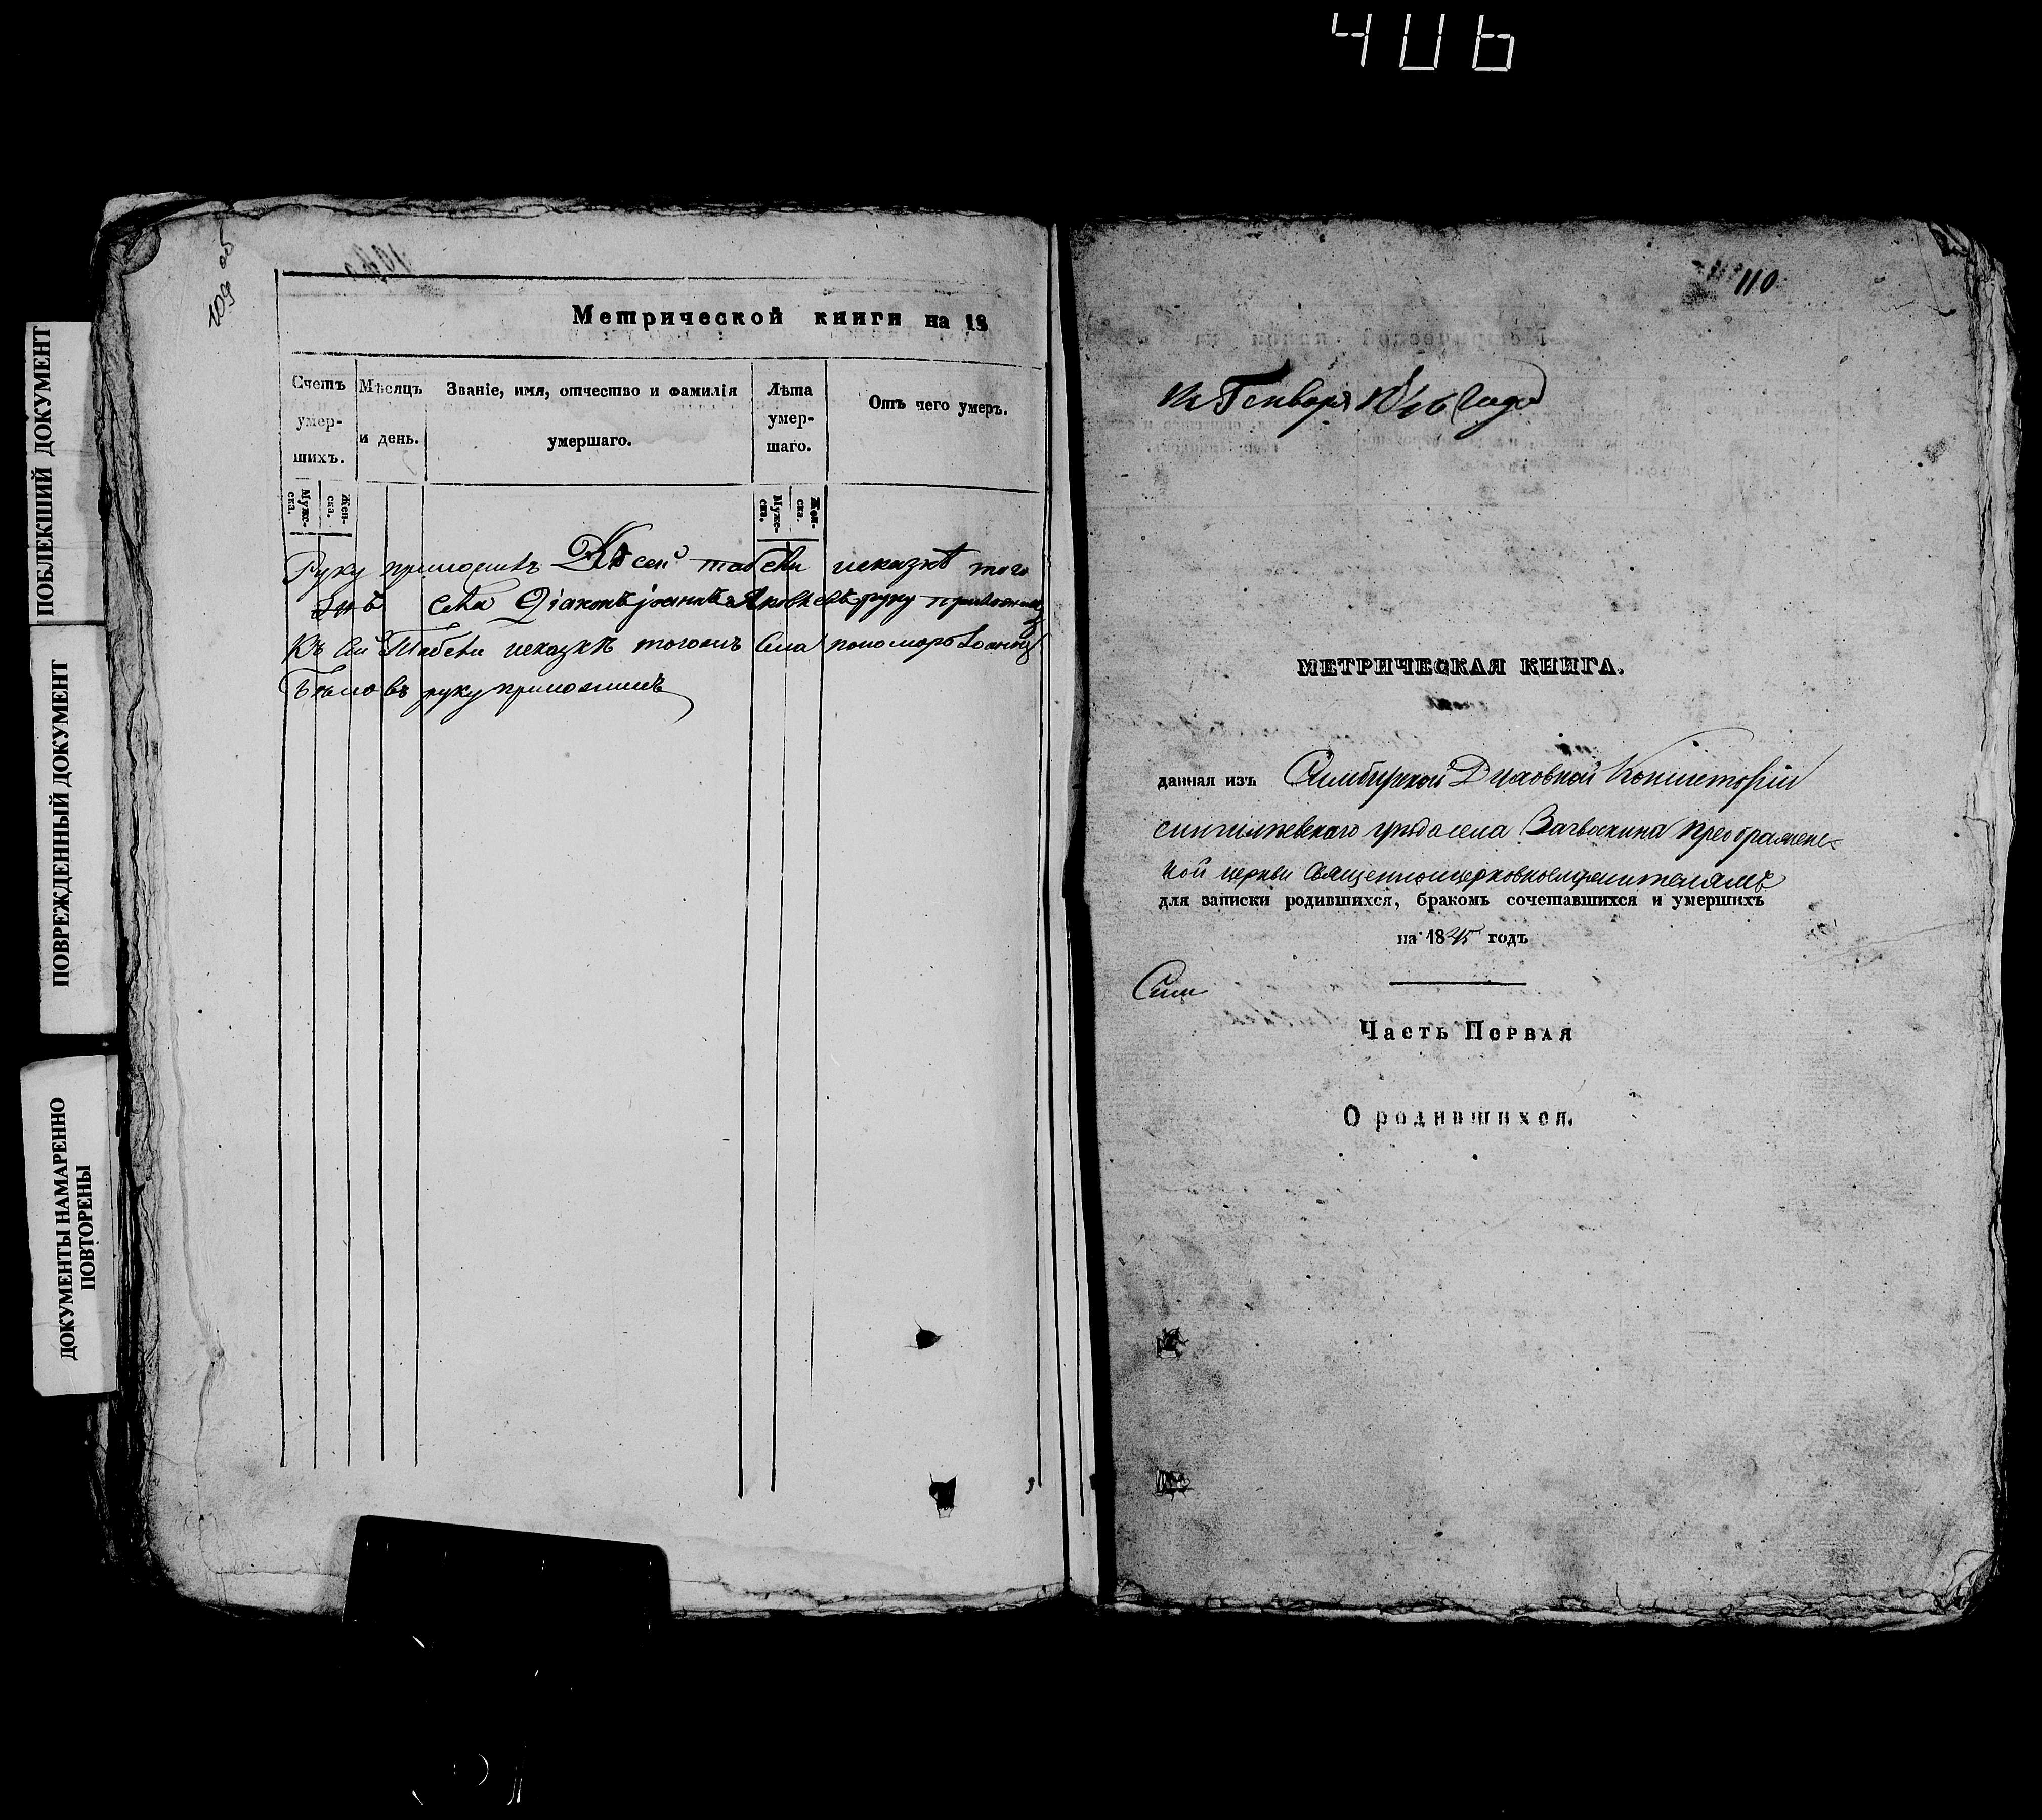 406
ПОБЛЕКШИЙ ДОКУМЕНТ
ПОВРЕЖДЕННЫЙ ДОКУМЕНТ
ДОКУМЕНТЫ НАМАРЕННО
ПОВТОРЕНЫ
109 об
Метрической книги на 18
Счетъ умер- шихъ.
Мѣсяцъ и день.
Званіе, имя, отчество и фамилія умершаго.
Лѣта умер- шаго.
Отъ чего умеръ.
Муже- ска.
Жен- ска.
Муже- ска.
Жен- ска.
Руку приложилъ Къ сей табели исказкѣ того
села Діаконъ Іоаннъ Яковлевъ руку приложилъ
Къ сей Табели исказкѣ тогожъ Села пономарь Іоаннъ
руку приложилъ
110
Генваря 1846 Года
МЕТРИЧЕСКАЯ КНИГА.
данная изъ Симбирской Духовной Консисторіи
сингилѣевскаго уѣзда села преображенс-
кой церкви священноицерковнослужителямъ
для записки родившихся, бракомъ сочетавшихся и умершихъ
на 1845 годъ
Сим
Часть Первая
О родившихся.